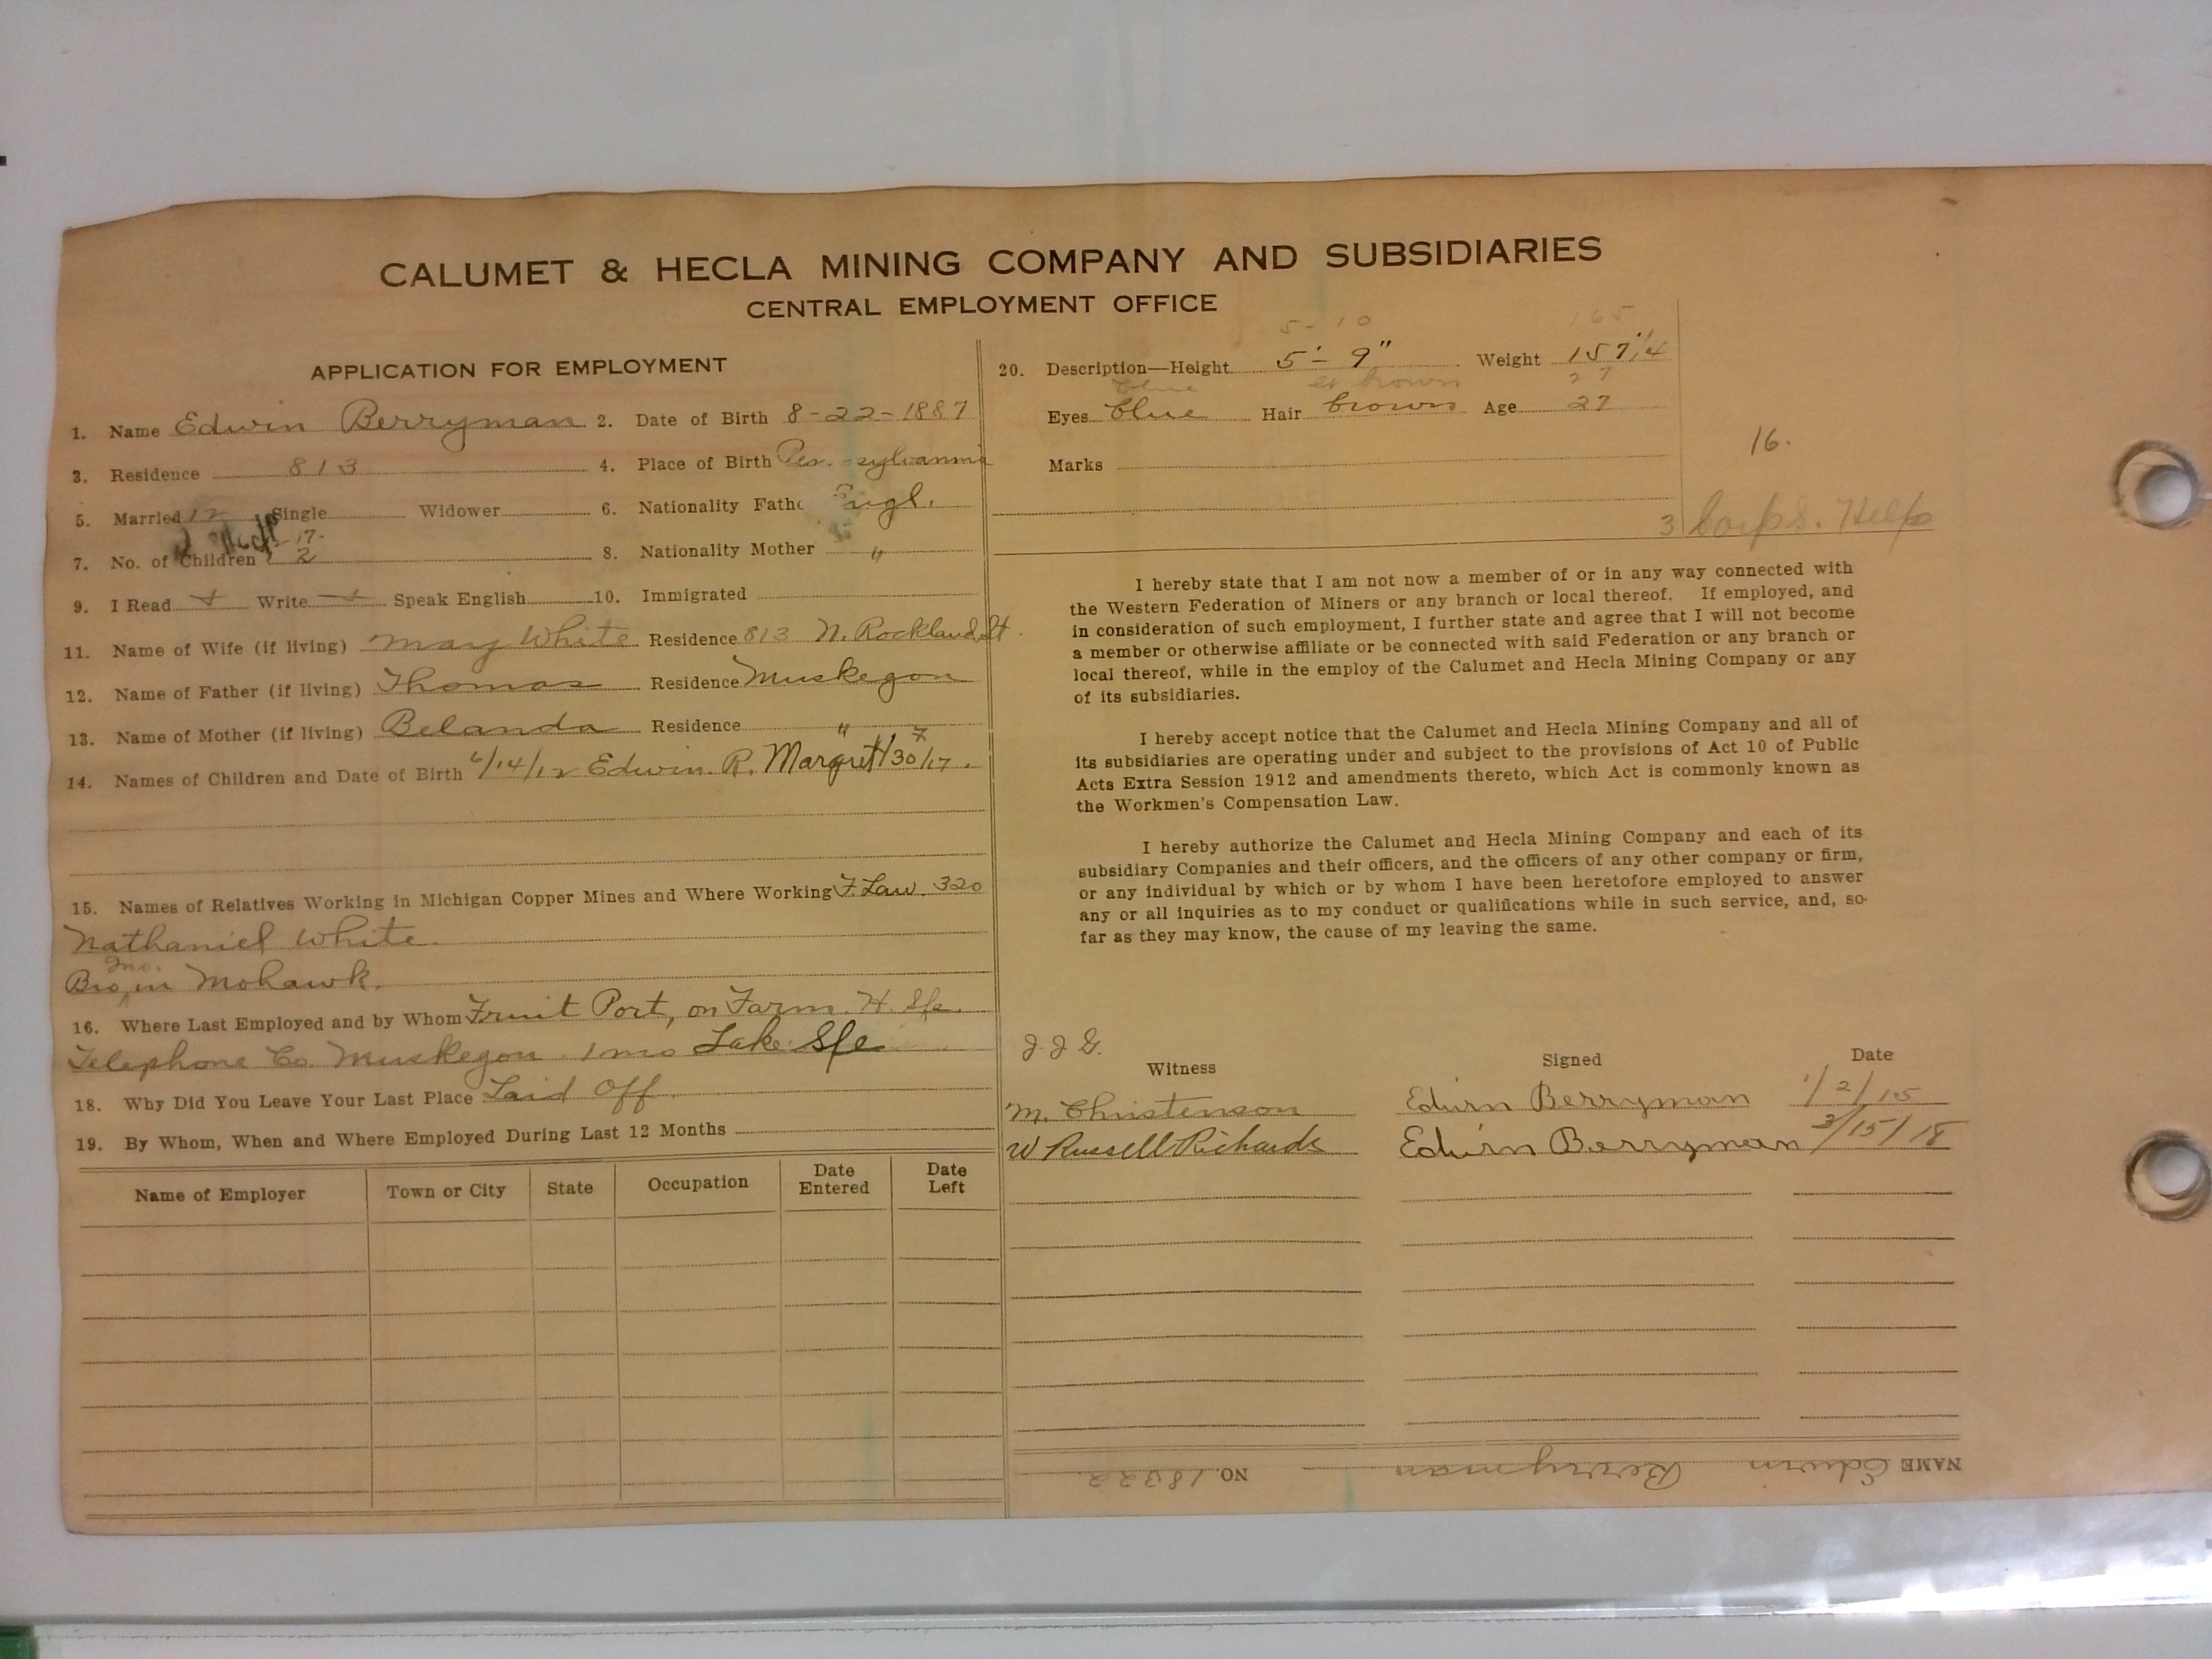 CALUMET & HECLA MINING COMPANY AND SUBSIDIARIES
CENTRAL EMPLOYMENT OFFICE
APPLICATION FOR EMPLOYMENT
1. Name Edwin Berryman 2. Date of Birth 8-22-1887
3. Residence 813 4. Place of Birth
5. Married 12 Single Widower 6. Nationality Fathe Engl.
17-
7. No. of Children 2 8. Nationality Mother "
9. I Read + Write + Speak English 10. Immigrated
11. Name of Wife (if living) Mary White Residence 813 N. Rockland St.
12. Name of Father (if living) Thomas Residence Muskegon
13. Name of Mother (if living) Belanda Residence "
14. Names of Children and Date of Birth 6/14/12 Edwin R. Margret /30/17.
15. Names of Relatives Working in Michigan Copper Mines and Where Working F. Law. 320
Nathaniel White
Bro. in Mohawk.
16. Where Last Employed and by Whom Fruit Port, on Farm. H. Sfe.
Telephone Co. Muskegon. 1 mo Lake Sfe
18. Why Did You Leave Your Last Place Laid Off.
19. By Whom, When and Where Employed During Last 12 Months
Name of Employer Town or City State Occupation Date Entered Date Left
5-10 165
20. Description—Height 5'-9" Weight 157 1/4
blue brown 27
Eyes blue Hair brown Age 27
Marks
16.
3 Help
I hereby state that I am not now a member of or in any way connected with
the Western Federation of Miners or any branch or local thereof. If employed, and
in consideration of such employment, I further state and agree that I will not become
a member or otherwise affiliate or be connected with said Federation or any branch or
local thereof, while in the employ of the Calumet and Hecla Mining Company or any
of its subsidiaries.
I hereby accept notice that the Calumet and Hecla Mining Company and all of
its subsidiaries are operating under and subject to the provisions of Act 10 of Public
Acts Extra Session 1912 and amendments thereto, which Act is commonly known as
the Workmen's Compensation Law.
I hereby authorize the Calumet and Hecla Mining Company and each of its
subsidiary Companies and their officers, and the officers of any other company or firm,
or any individual by which or by whom I have been heretofore employed to answer
any or all inquiries as to my conduct or qualifications while in such service, and, so
far as they may know, the cause of my leaving the same.
Witness Signed Date
M. Christenson Edwin Berryman 1/2/15
W Russell Richards Edwin Berryman 3/15/18
NAME Edwin Berryman NO. 18322